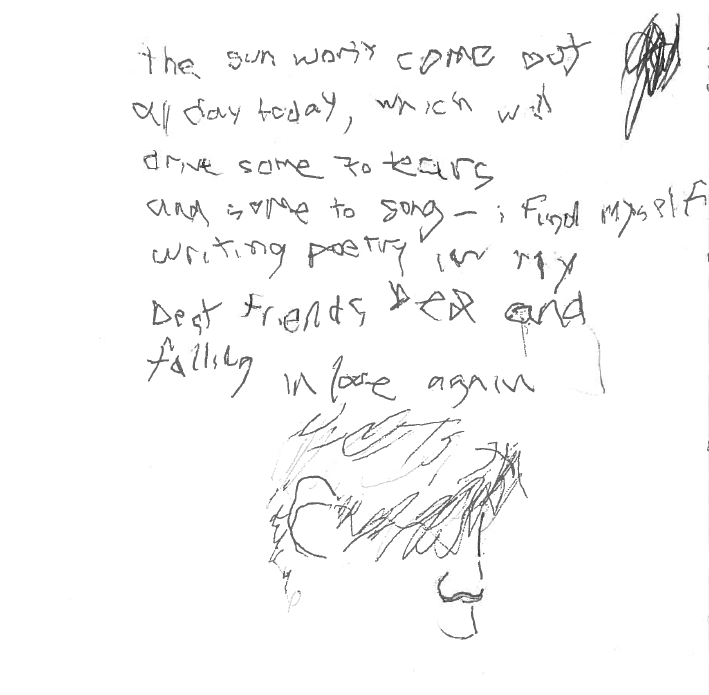 the sun won't come out
all day today, which will
drive some to tears
and some to song — i find myself
writing poetry in my
best friends bed and
falling in love again